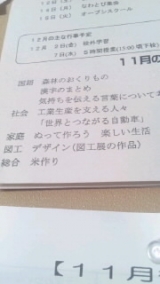 15日(火)
16日(水) オープンスクール
12月の主な行事予定
12月 5日(金) 校外学習
11月の
国語 森林のおくりもの
漢字のまとめ
気持ちを伝える言葉について
社会 工業生産を支える人々
「世界とつながる自動車」
家庭 ぬって作ろう 楽しい生活
図工 デザイン(図工展の作品)
総合 米作り
【11月